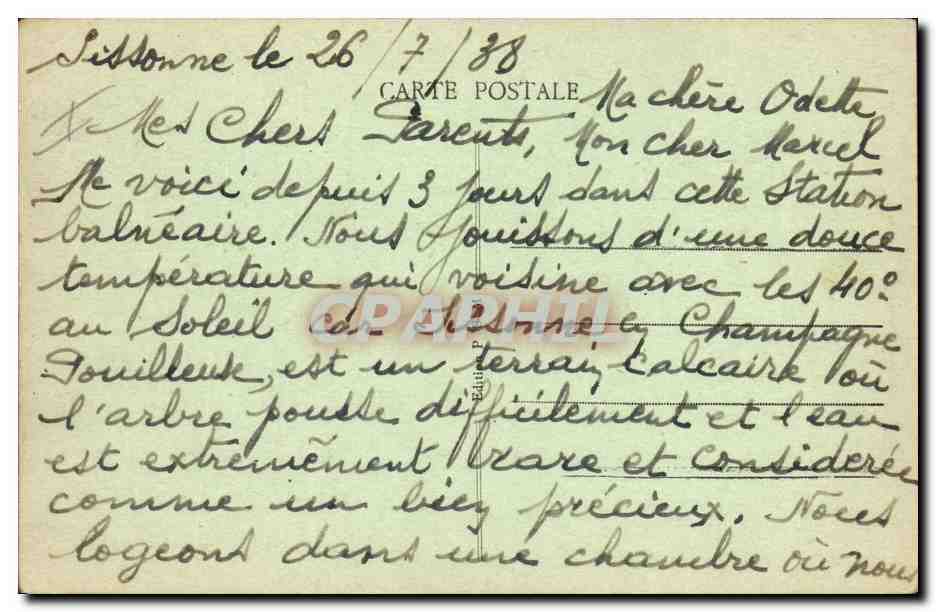 Sissonne le 26/7/38
CARTE POSTALE
Ma chère Odette
X Mes Chers Parents, Mon cher Marcel
Me voici depuis 3 jours dans cette Station
balnéaire. Nous jouissons d'une douce
température qui voisine avec les 40°
au Soleil car Sissonne en Champagne
Pouilleuse, est un terrain Calcaire où
l'arbre pousse difficilement et l'eau
est extremêment rare et considerée
comme un bien précieux. Nous
logeons dans une chambre où nous
CPAPHIL
Edition P